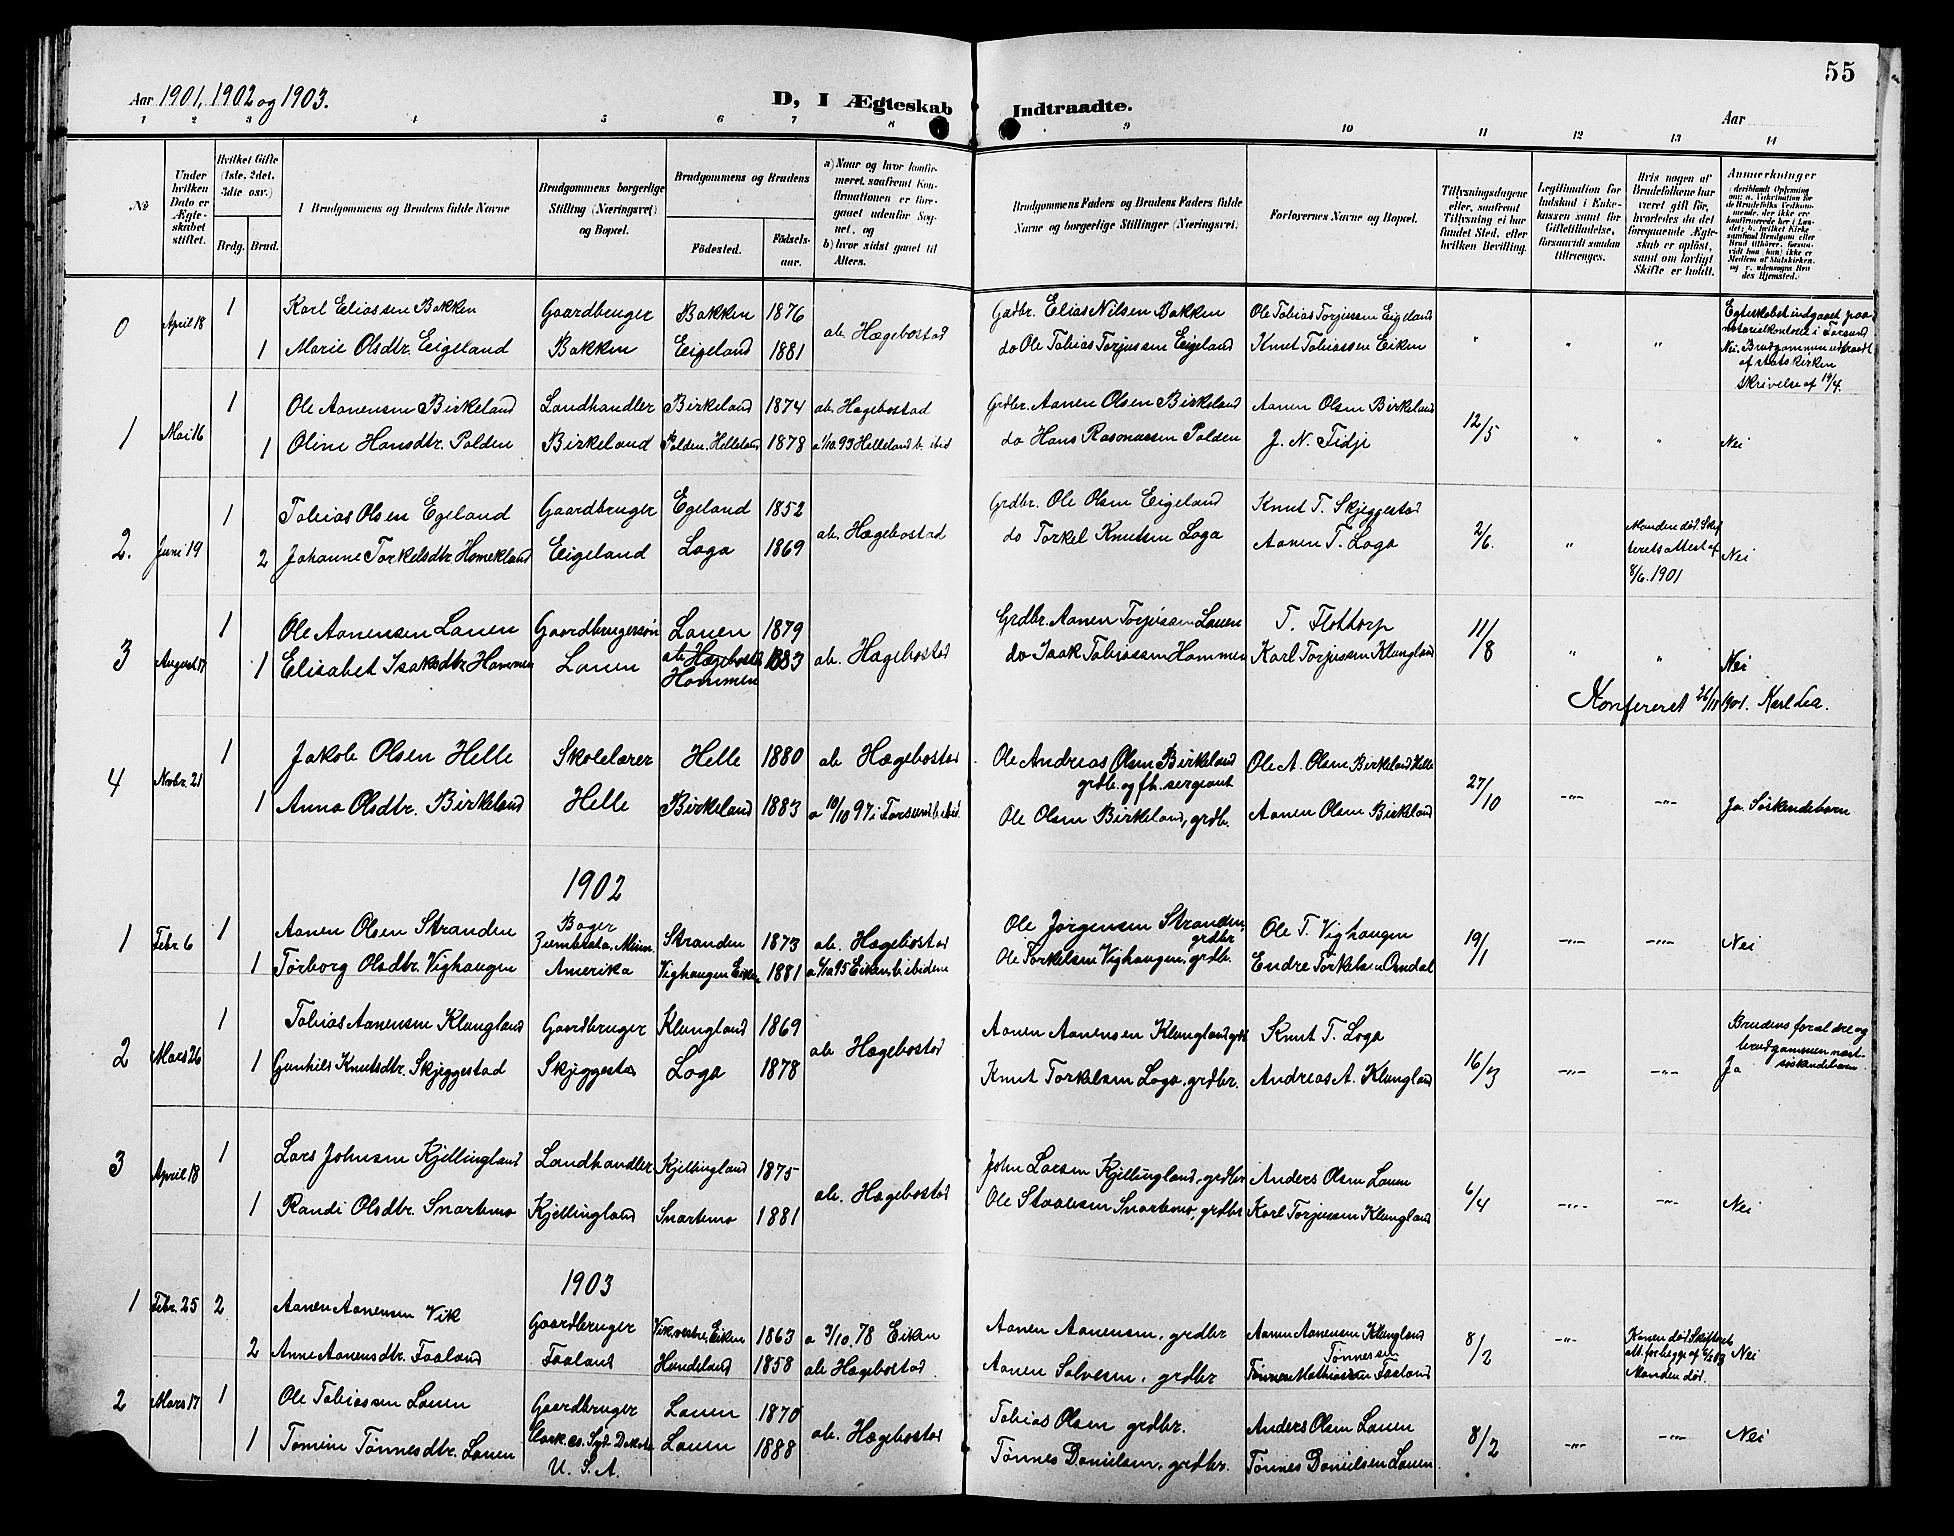 55
Aar 1901, 1902 og 1903.
D, I Ægteskab Indtraadte.
Aar
1 2 3 4 5 6 7 8 9 10 11 12 13 14
No
Under hvilken Dato er Ægteskabet stiftet.
Hvilket Gifte (1ste, 2det, 3die osv.)
Brdg. Brud.
Brudgommens og Brudens fulde Navne
Brudgommens borgerlige Stilling (Næringsvei) og Bopæl.
Brudgommens og Brudens
Fødested.
Fødselsaar.
a) Naar og hvor konfirmeret, saafremt Konfirmationen er foregaaet udenfor Sognet, og
b) hvor sidst gaaet til Alters.
Brudgommens Faders og Brudens Faders fulde Navne og borgerlige Stillinger (Næringsvei).
Forlovernes Navne og Bopæl.
Tillysningsdagene eller, saafremt Tillysning ei har fundet Sted, efter hvilken Bevilling.
Legitimation for Indskud i Enkekassen samt for Giftetilladelse, forsaavidt saadan tiltrænges.
Hvis nogen af Brudefolkene har været gift før, hvorledes da det foregaaende Ægteskab er opløst, samt om lovligt Skifte er holdt.
Anmærkninger
0 April 18 1 Karl Eliassen Bakken Gaardbruger Bakken 1876 ab. Hægebostad Gadbr. Elias Nilsen Bakken Ole Tobias Torjussen Eigeland " " " Egteskabet indgaaet paa notarialkontoret i Farsund
1 Marie Olsdtr. Eigeland Bakken Eigeland 1881 do Ole Tobias Torjussen Eigeland Knut Tobiassen Eiken Nei. Brudgommen udtraadt af statskirken skrivelse af 19/4.
1 Mai 16 1 Ole Aanensen Birkeland Landhandler Birkeland 1874 ab. Hægebostad Grdbr. Aanen Olsen Birkeland Aanen Olsen Birkeland 12/5 " " Nei
1 Oline Hansdtr. Polden Birkeland Polden, Helleland 1878 a 1/10 93 Helleland b. ibid do Hans Rasmussen Polden J. N. Tidje
2. Juni 19 1 Tobias Olsen Egeland Gaardbruger Egeland 1852 ab. Hægebostad Grdbr. Ole Olsen Eigeland Knut T. Skjeggestad 2/6. " Manden død, Skifteretsattest af 8/6. 1901 Nei
2 Johanne Torkelsdtr. Homekland Eigeland Loga 1869 do Torkel Knutsen Loga Aanen T. Loga
3 August 17 1 Ole Aanensen Lauen Gaardbrugersøn Lauen 1879 ab. Hægebostad Grdbr. Aanen Torjussen Lauen T. Flottorp 11/8 " " Nei
1 Elisabet Isaksdtr. Hommen Lauen ab. Hægebostad Hommen 1883 do Isak Tobiassen Hommen Karl Torjussen Klungland
Konfereret 26/11 1901. Karl Lea.
4 Novbr. 21 1 Jakob Olsen Helle Skolelærer Helle 1880 ab Hægebostad Ole Andreas Olsen Birkeland grdb. og fh. sergeant Ole A. Olsen Birkeland Helle 27/10 -"- -"- Ja. Søskendebarn
1 Anna Olsdtr. Birkeland Helle Birkeland 1883 a 10/10 97 i Farsund b. ibid. Ole Olsen Birkeland, grdb. Aanen Olsen Birkeland
1902
1 Febr. 6 1 Aanen Olsen Stranden Bager Stranden 1873 ab. Hægebostad Ole Jørgensen Stranden, grdbr Ole T. Vighaugen 19/1 -"- -"- Nei
1 Tørborg Olsdtr. Vighaugen Amerika Vighaugen Eiken 1881 a 1/10 95 Eiken, b. ibidem Ole Torkelsen Vighaugen, grdb. Endre Torkelsen Omdal
2 Mars 26 1 Tobias Aanensen Klungland Gaardbruger Klungland 1869 ab Hægebostad Aanen Aanensen Klungland grdb Knut T. Loga 16/3 -"- -"- Brudens forældre og brudgommen næstsøskendebarn
1 Gunhild Knutsdtr. Skjeggestad Skjeggestad Loga 1878 Knut Torkelsen Loga, grdbr. Andreas A. Klungland Ja
3 April 18 1 Lars Johnsen Kjellingland Landhandler Kjellingland 1875 ab. Hægebostad John Larsen Kjellingland, grdbr Anders Olsen Lauen 6/4 -"- -"- Nei
1 Randi Olsdtr. Snartemo Kjellingland Snartemo 1881 Ole Staalesen Snartemo, grdbr Karl Torjussen Klungland
1903
1 Febr. 25 2 Aanen Aanensen Vik Gaardbruger Vik vestre, Eiken 1863 a 7/10. 78 Eiken Aanen Aanensen, grdbr Aanen Aanensen Klungland 8/2 -"- Konen død Skifteret att. for begge af Manden død. Nei
2 Anne Aanensdtr. Faaland Faaland Hundeland 1858 ab Hægebostad. Aanen Salvesen, grdbr Tønnes Mathias Tønnessen Faaland
2 Mars 17 1 Ole Tobiassen Lauen Gaardbruger Lauen 1870 ab. Hægebostad Tobias Olsen grdbr. Anders Olsen Lauen 8/2 -"- -"- Nei
1 Tomine Tønnesdtr. Lauen Clark co. Syd Dakota U. S. A. Lauen 1888 Tønnes Danielsen, grdbr. Tønnes Danielsen Lauen